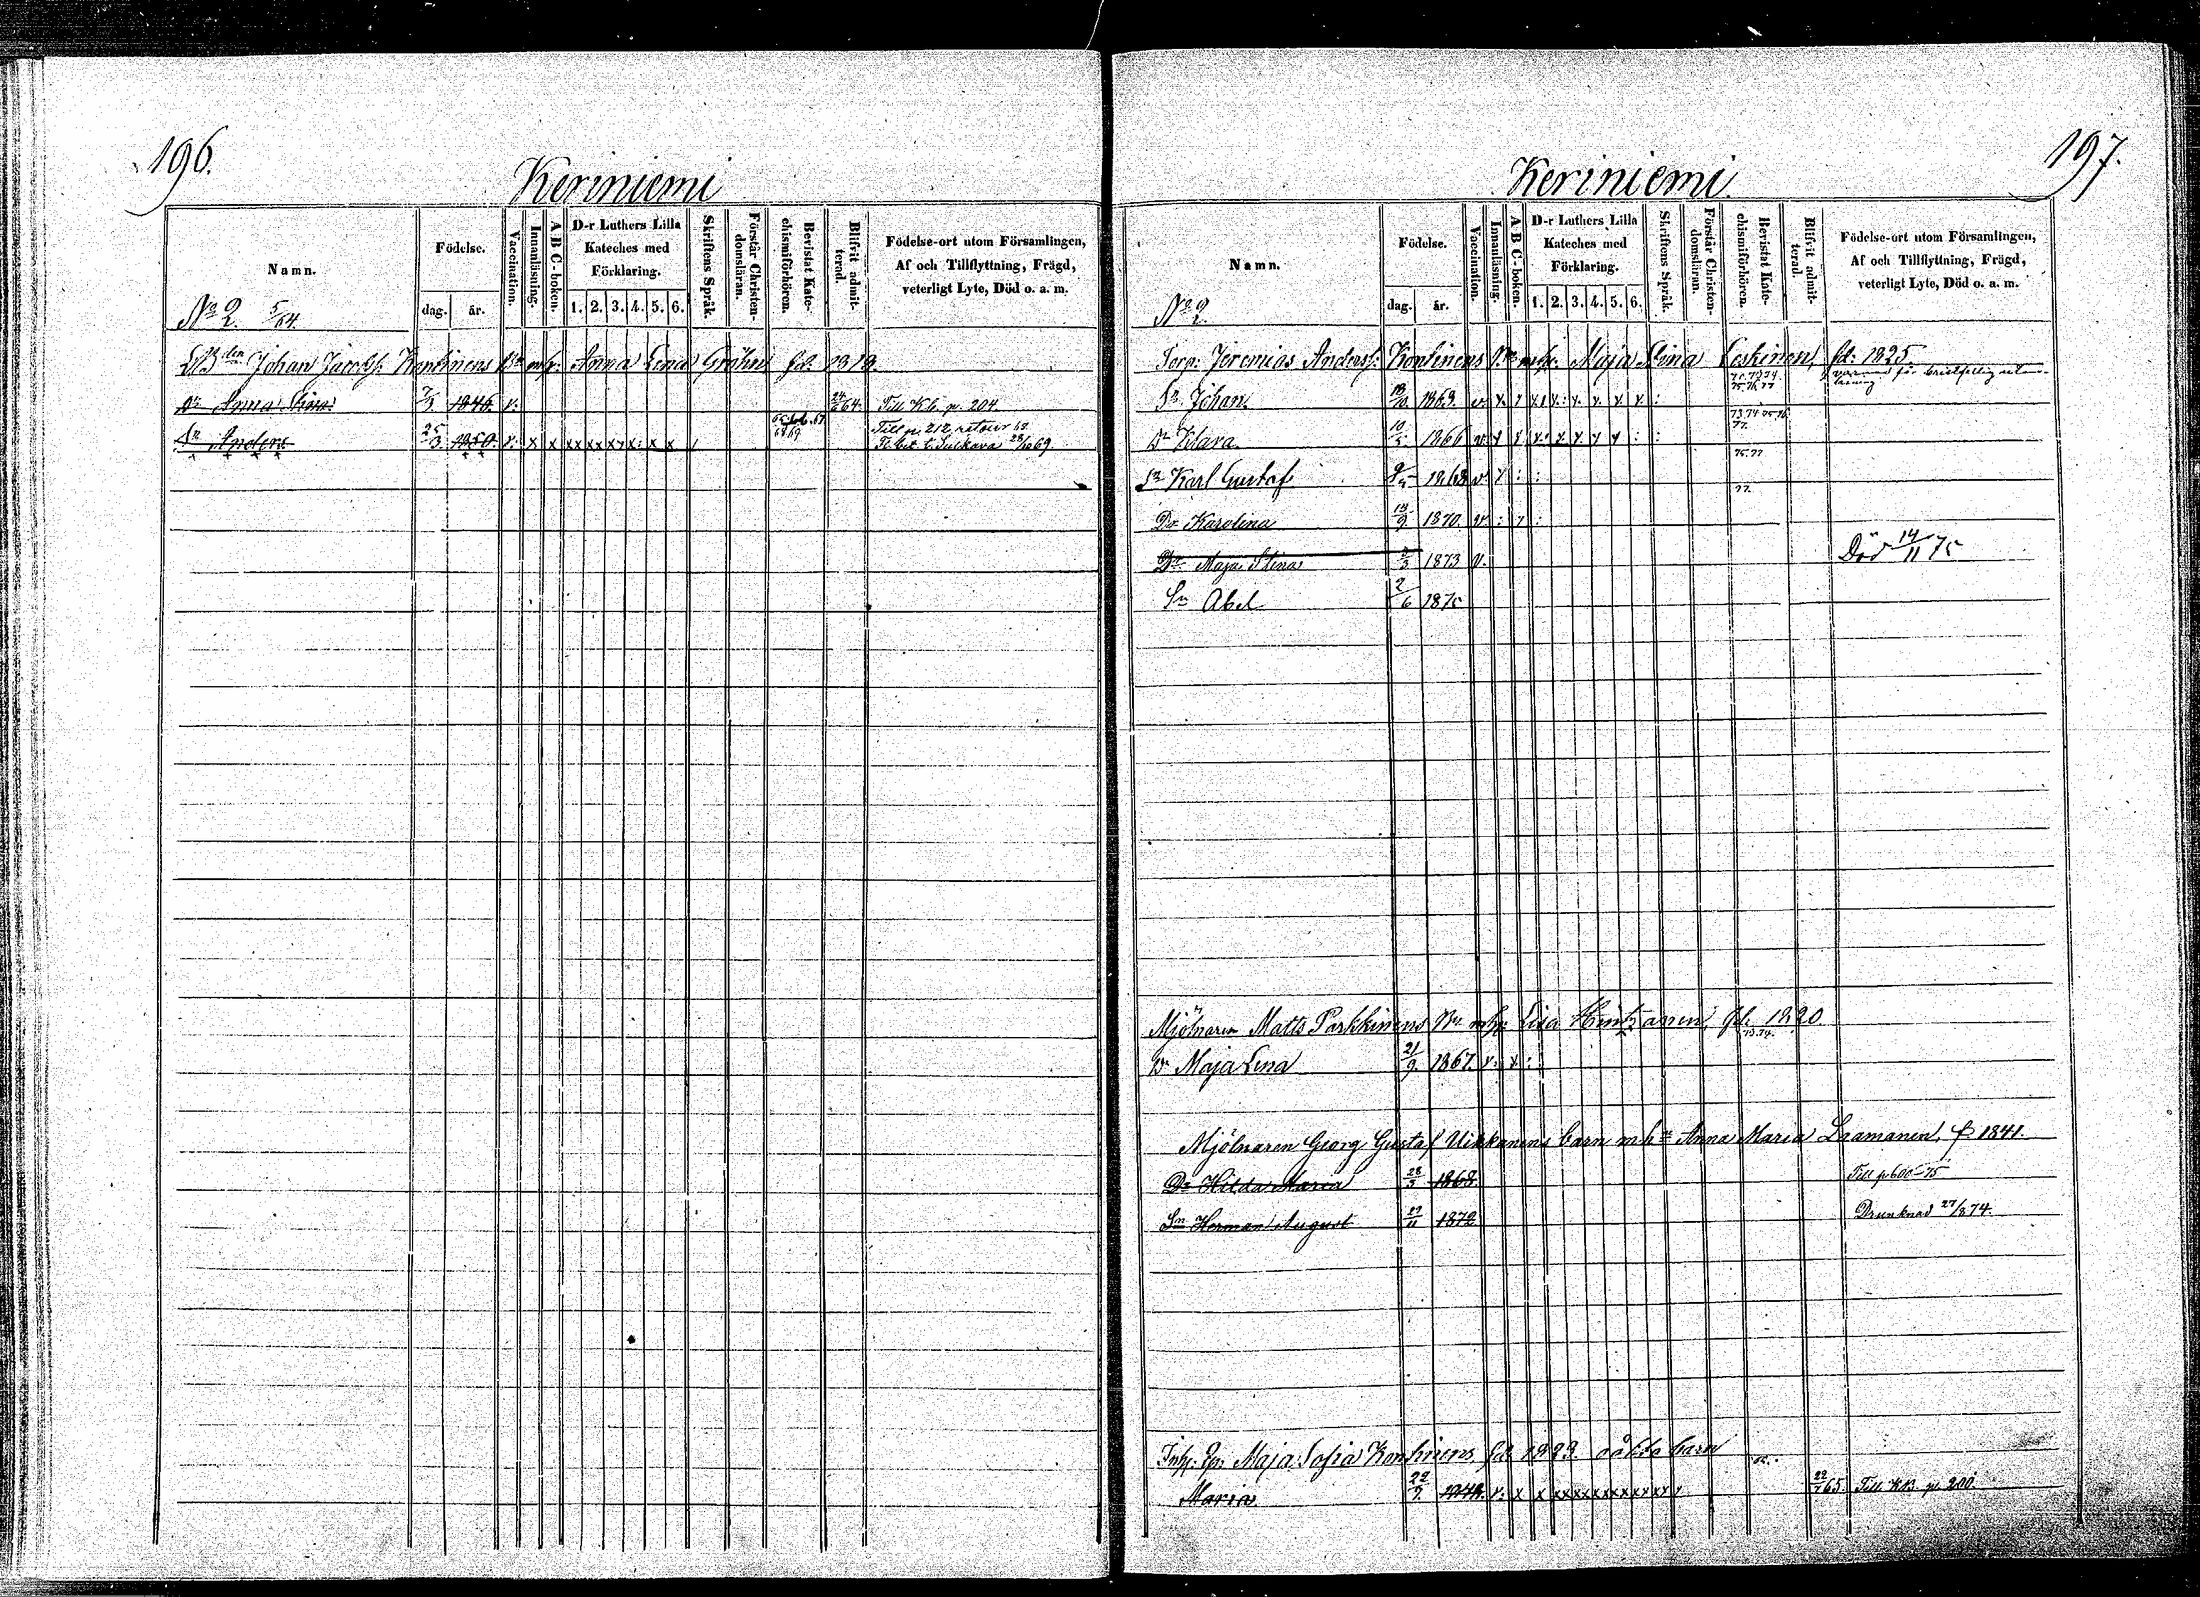 196.
Keriniemi
Namn.
Födelse.
dag.
år.
Vaccination.
Innanläsning.
A B C-boken.
D-r Luthers Lilla Kateches med Förklaring.
1. 2. 3. 4. 5. 6.
Skriftens Språk.
Förstår Christendomsläran.
Bevistat Katechismiförhören.
Blifvit admitterad.
Födelse-ort utom Församlingen,
Af och Tillflyttning, Frägd,
veterligt Lyte, Död o. a. m.
No 2. 5/64.
Johan Jacobs: Kontinens Bn mhu: Anna Lena Gröhn fd: 1819.
Dr Anna Stina 7/3 1846. v. 64. Till Kb. p. 204.
Sn Anders 25/3. 1850. v. x x xx xx xx x: x x 68 69 Till p. 212, retour 68.
Fl. bet. t. Sulkava 28/10 69
197.
Keriniemi
Namn.
Födelse.
dag.
år.
Vaccination.
Innanläsning.
A B C-boken.
D-r Luthers Lilla Kateches med Förklaring.
1. 2. 3. 4. 5. 6.
Skriftens Språk.
Förstår Christendomsläran.
Bevistat Katechismiförhören.
Blifvit admitterad.
Födelse-ort utom Församlingen,
Af och Tillflyttning, Frägd,
veterligt Lyte, Död o. a. m.
No 2.
Torp: Jeremias Anderss: Kontinens Bn mhu: Maja Stina Leskinen, fd: 1825.
Sn Johan. 18/10. 1863. v.
75. 76. 77
Dr Klara 10/5 1866 v.
73. 74 75 76
77.
Sn Karl Gustaf 9/5 1868 v.
75. 77
Dr Karolina 18/9. 1870. v.
77.
Dr Maja Stina 3/3 1873 v. Död 14/11 75
Sn Abel 2/6 1875
Mjölnaren Matts Parkkinens Bn mhu Lisa Hintzanen, fd. 1820.
73. 74.
Dr Maja Lena 21/9. 1867. v. x. :
Mjölnaren Georg Gustaf Ukkonens barn mhn Anna Maria Loamanen, f 1841.
Dr Hilda Maria 28/3 1868 Till p 600 75
Sn Herman August 27/11 1872 Drunknad 27/8 74.
Inh. Pg. Maja Sofia Kontinens fd. 1823. oäkta barn
Maria 22/7. 1848. v: x x xx xx xx xx xx xx x 22/7 65. Till KB. p. 200.